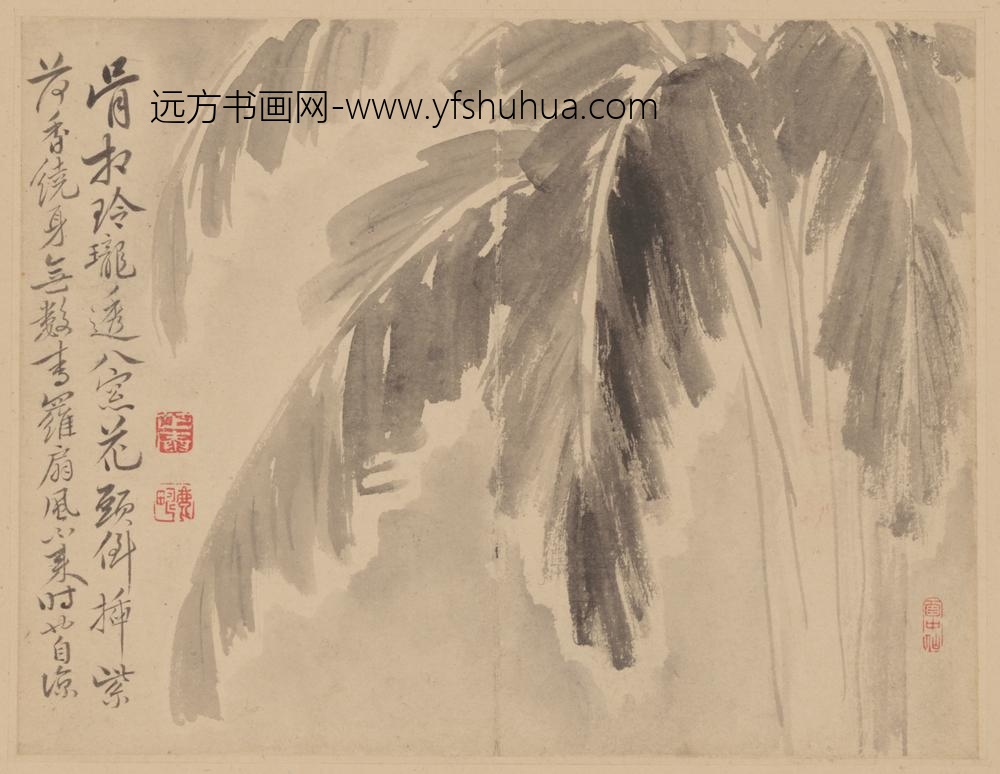 远方书画网-www.yfshuhua.com
骨相玲瓏透八窓花頭倒插紫
荷香繞身無數青羅扇風不來時也自涼